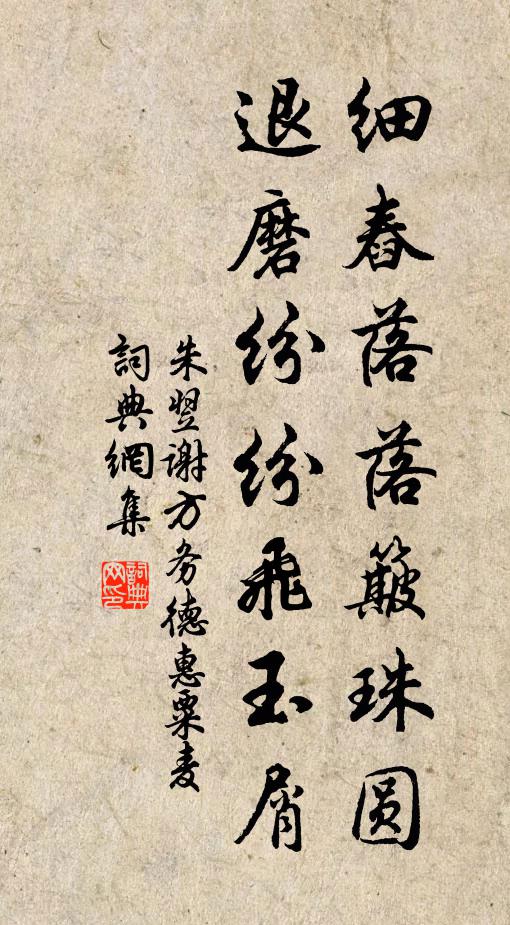 细舂落落簸珠圆
退磨纷纷飛玉屑
朱翌谢方务德惠粟麦
詞典網集
詞典网印